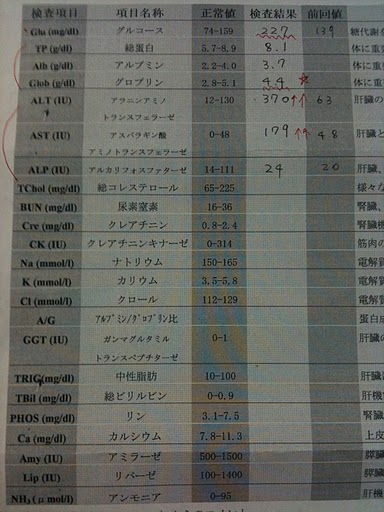 検査項目 項目名称 正常値 検査結果 前回値
Glu (mg/dl) グルコース 74-159 227 139 糖代謝
TP (g/dl) 総蛋白 5.7-8.9 8.1 体に重
Alb (g/dl) アルブミン 2.2-4.0 3.7 体に重
Glob (g/dl) グロブリン 2.8-5.1 4.4 体に重
ALT (IU) アラニンアミノ 12-130 370↑↑ 63 肝臓の
トランスフェラーゼ
AST (IU) アスパラギン酸 0-48 179↑↑ 48 肝臓と
アミノトランスフェラーゼ
ALP (IU) アルカリフォスファターゼ 14-111 24 20 肝臓、
TChol (mg/dl) 総コレステロール 65-225 様々な
BUN (mg/dl) 尿素窒素 16-36 腎臓、
Cre (mg/dl) クレアチニン 0.8-2.4 腎臓機
CK (IU) クレアチニンキナーゼ 0-314 筋肉の
Na (mmol/l) ナトリウム 150-165 電解質
K (mmol/l) カリウム 3.5-5.8 電解質
Cl (mmol/l) クロール 112-129 電解質
A/G アルブミン/グロブリン比 蛋白成
GGT (IU) ガンマグルタミル 0-1 肝臓の
トランスペプチターゼ
TRIG(mg/dl) 中性脂肪 10-100 肝臓
TBil (mg/dl) 総ビリルビン 0-0.9 肝機
PHOS (mg/dl) リン 3.1-7.5 腎臓、
Ca (mg/dl) カルシウム 7.8-11.3 上皮
Amy (IU) アミラーゼ 500-1500 膵臓
Lip (IU) リパーゼ 100-1400 膵臓
NH₃ (μmol/l) アンモニア 0-95 肝機